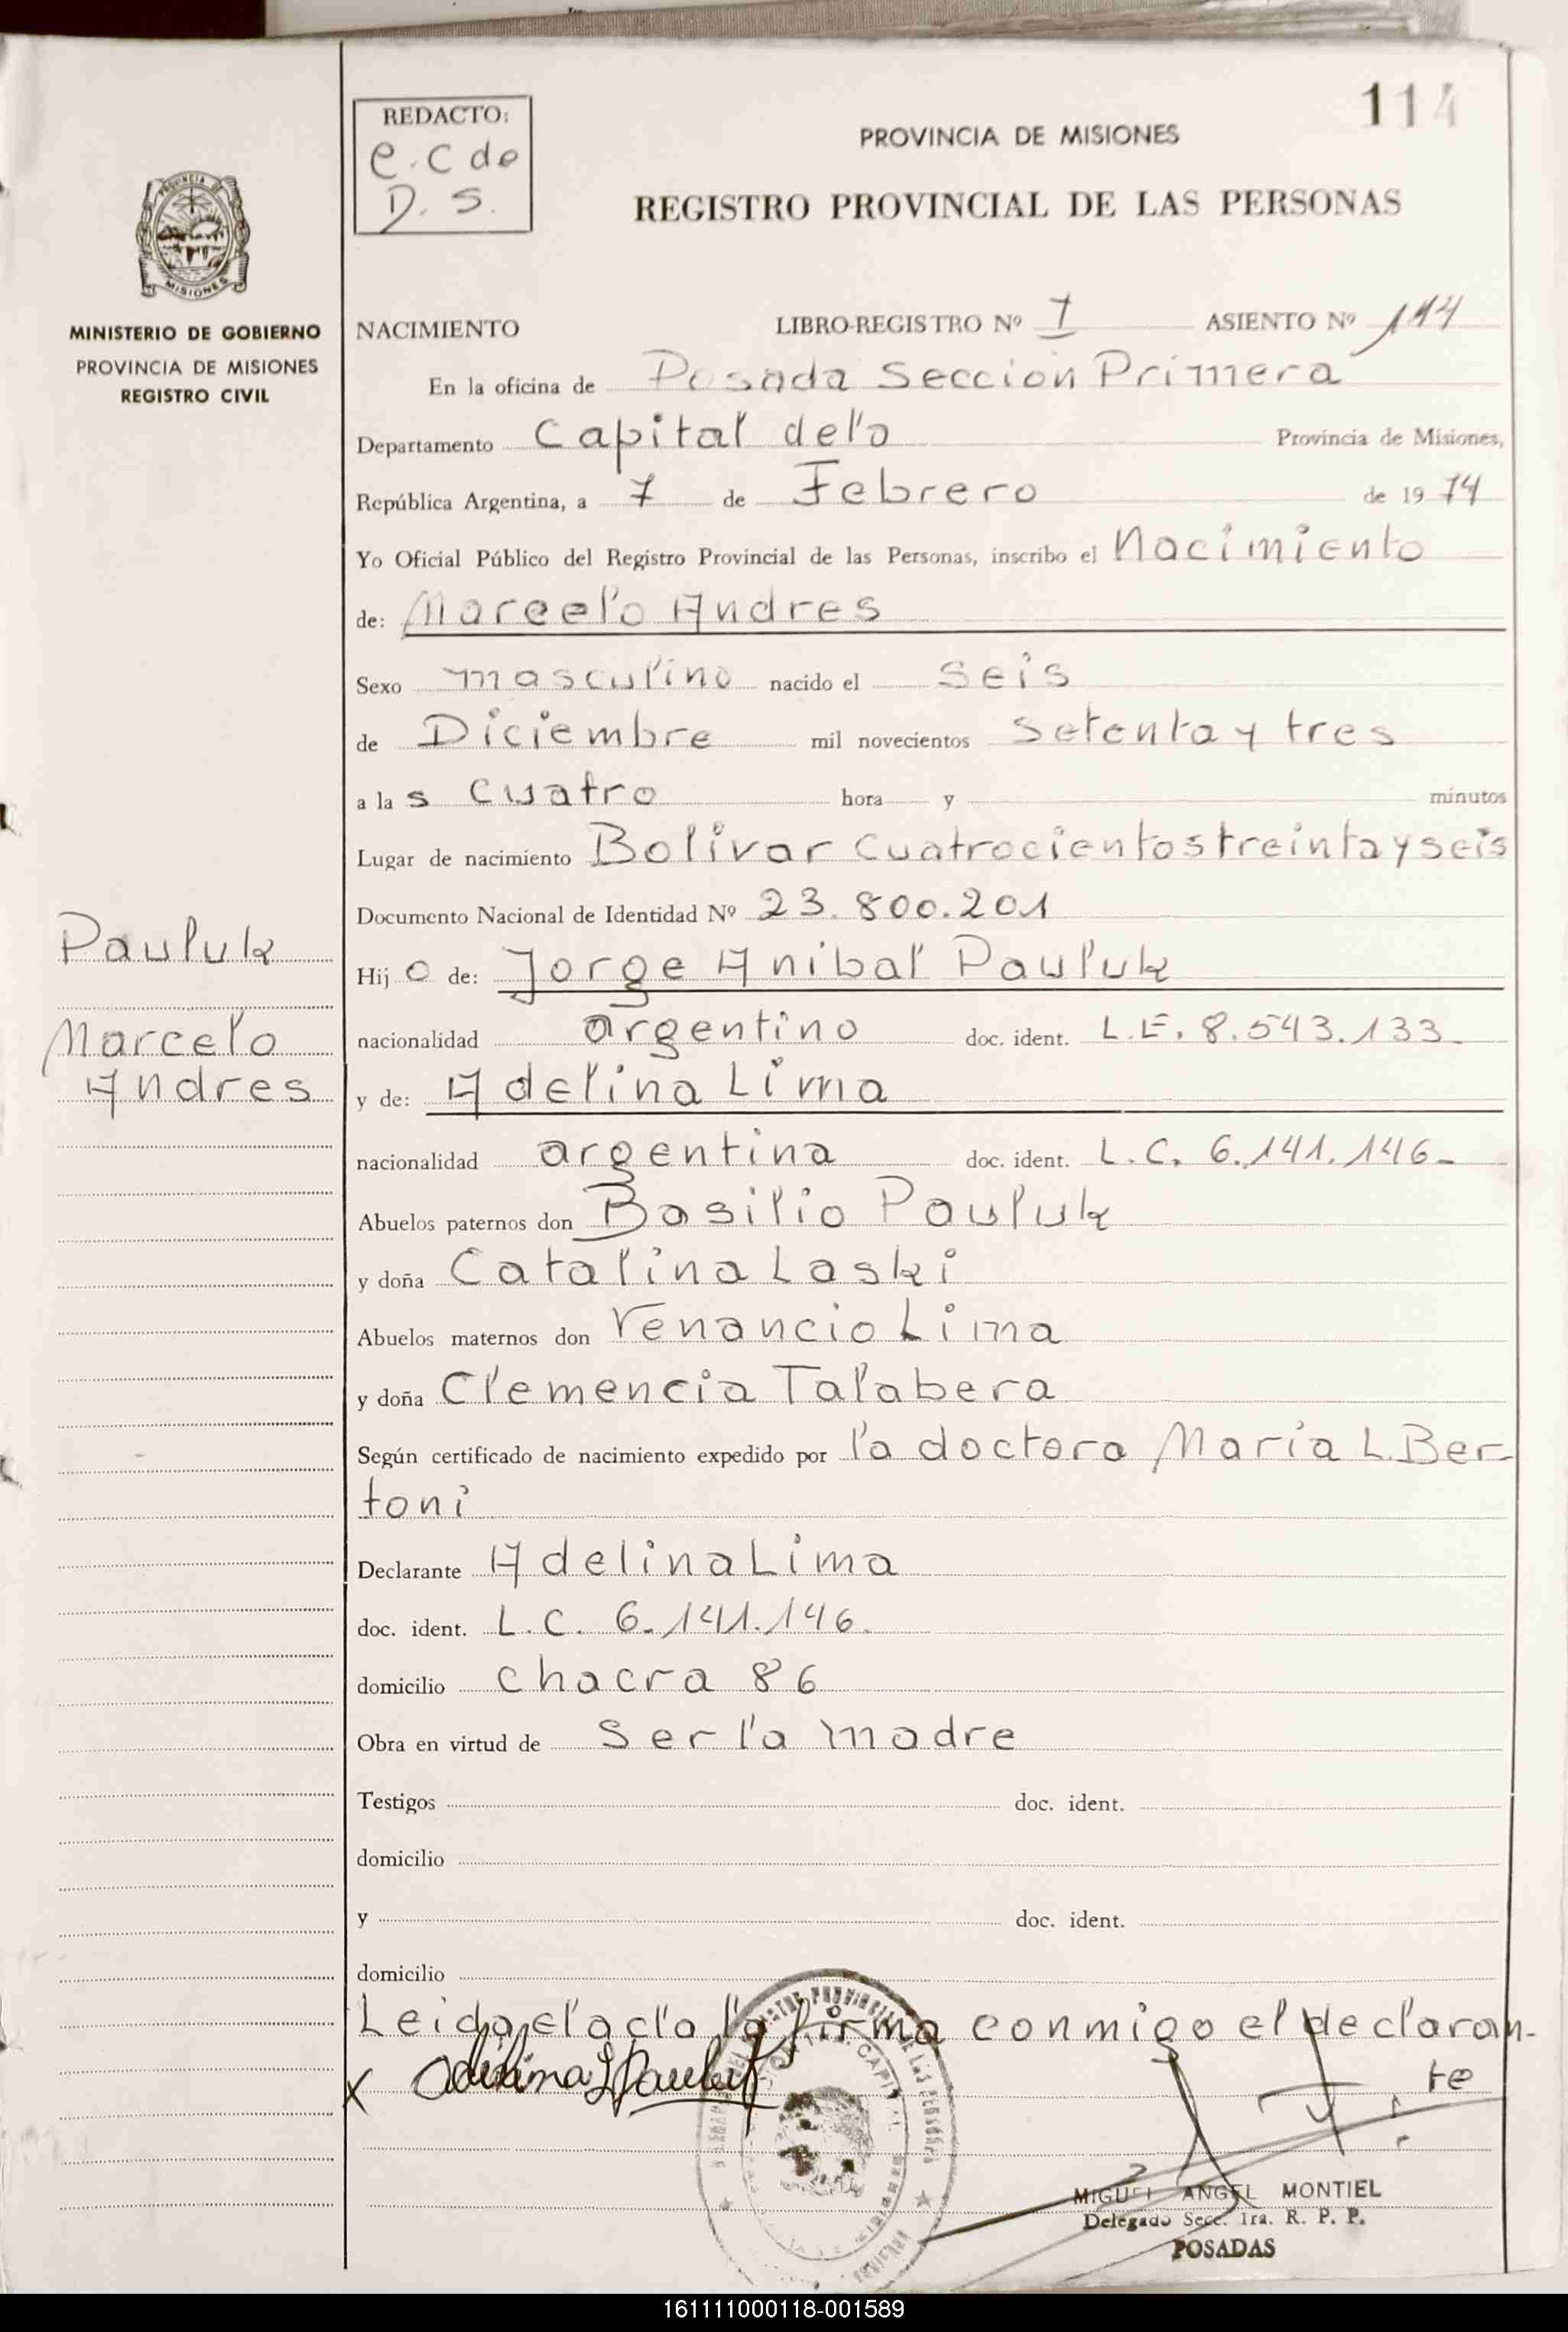 114
REDACTO:
e.c de
D. S.
PROVINCIA DE MISIONES
REGISTRO PROVINCIAL DE LAS PERSONAS
PROVINCIA DE
MISIONES
MINISTERIO DE GOBIERNO
PROVINCIA DE MISIONES
REGISTRO CIVIL
NACIMIENTO LIBRO-REGISTRO Nº I ASIENTO Nº 114
En la oficina de Posada Sección Primera
Departamento Capital delo Provincia de Misiones,
República Argentina, a 7 de Febrero de 1974
Yo Oficial Público del Registro Provincial de las Personas, inscribo el Nacimiento
de: Marcelo Andres
Sexo masculino nacido el seis
de Diciembre mil novecientos setenta y tres
a las cuatro hora y minutos
Lugar de nacimiento Bolívar cuatrocientos treinta y seis
Documento Nacional de Identidad Nº 23.800.201
Pauluk
Hijo de: Jorge Anibal Pauluk
Marcelo
nacionalidad argentino doc. ident. L.E. 8.543.133.
Andres
y de: Adelina Lima
nacionalidad argentina doc. ident. L.C. 6.141.146-
Abuelos paternos don Basilio Pauluk
y doña Catalina Laski
Abuelos maternos don Venancio Lima
y doña Clemencia Talabera
Según certificado de nacimiento expedido por la doctora María L. Ber-
toni
Declarante Adelina Lima
doc. ident. L.C. 6.141.146.
domicilio chacra 86
Obra en virtud de ser la madre
Testigos doc. ident.
domicilio
y doc. ident.
domicilio
Leida el acta la firma conmigo el declaran-
te
x Adelina L Pauluk
MIGUEL ANGEL MONTIEL
Delegado Secc. 1ra. R. P. P.
POSADAS
161111000118-001589